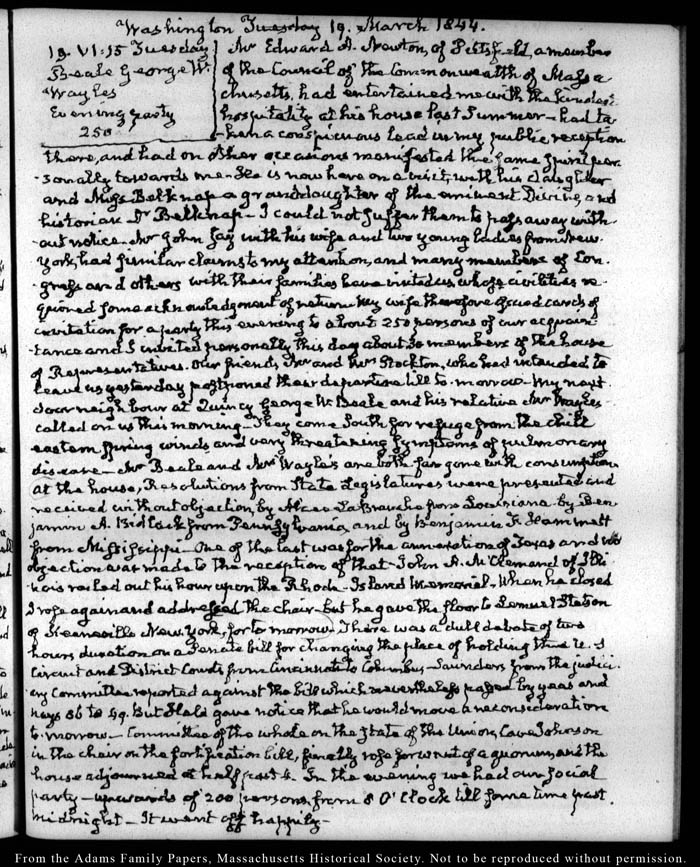 Washington Tuesday 19. March 1844.
19. VI:15 Tuesday
Beale George W.
Wayles
Evening party
250
Mr Edward A. Newton, of Pittsfield, a member
of the Council of the Commonwealth of Massa
chusetts, had entertained me with the kindest
hospitality at his house last Summer — had ta
-ken a conspicuous lead in my public reception
there, and had on other occasions manifested the same spirit per
-sonally towards me. He is now here on a visit, with his daughter
and Miss Belknap a granddaughter of the eminent Divine, and
historian Dr Belknap — I could not suffer them to pass away with
-out notice. Mr John Jay with his wife and two young Ladies from New
York, had similar claims to my attention, and many members of Con
-gress and others with their families have visited us whose civilities re
-quired some acknowledgment of return. My wife therefore issued cards of
invitation for a party this evening to about 250 persons of our acquain
-tance and I invited personally this day about 30 members of the house
of Representatives. Our friends, Mr and Mrs Stockton, who had intended to
leave us yesterday postponed their departure till to-morrow. My next
door neighbour at Quincy George W. Beale and his relative Mr Wayles
called on us this morning — They come South for refuge from the chill
eastern Spring winds and very threatening symptoms of pulmonary
disease — Mr Beale and Mr Wayles are both far gone with consumption
at the house, Resolutions from State Legislatures were presented and
received without objection, by Alcee LaBranche from Louisiana by Ben
jamin A. Bidlack from Pennsylvania, and by Benjamin F. Hammett
from Mississippi — One of the last was for the annexation of Texas and no
objection was made to the reception of that. John A. McClernand of Illi
nois railed out his hour upon the Rhode-Island Memorial. When he closed
I rose again and addressed the Chair — but he gave the floor to Lemuel Stetson
of Keeseville New York, for to morrow. There was a dull debate of two
hours duration on a Senate bill for changing the place of holding the U. S
Circuit and District Courts from Cincinnati to Columbus — Saunders from the judici
ary Committee reported against the bill which nevertheless passed by yeas and
nays 86 to 49. But Hale gave notice that he would move a reconsideration
to-morrow — Committee of the whole on the State of the Union, Cave Johnson
in the chair on the fortification bill, finally rose for want of a quorum, and the
house adjourned at half past 4. In the evening we had our social
party — upwards of 200 persons, from 8 O'Clock till some time past
midnight — It went off happily —
From the Adams Family Papers, Massachusetts Historical Society. Not to be reproduced without permission.